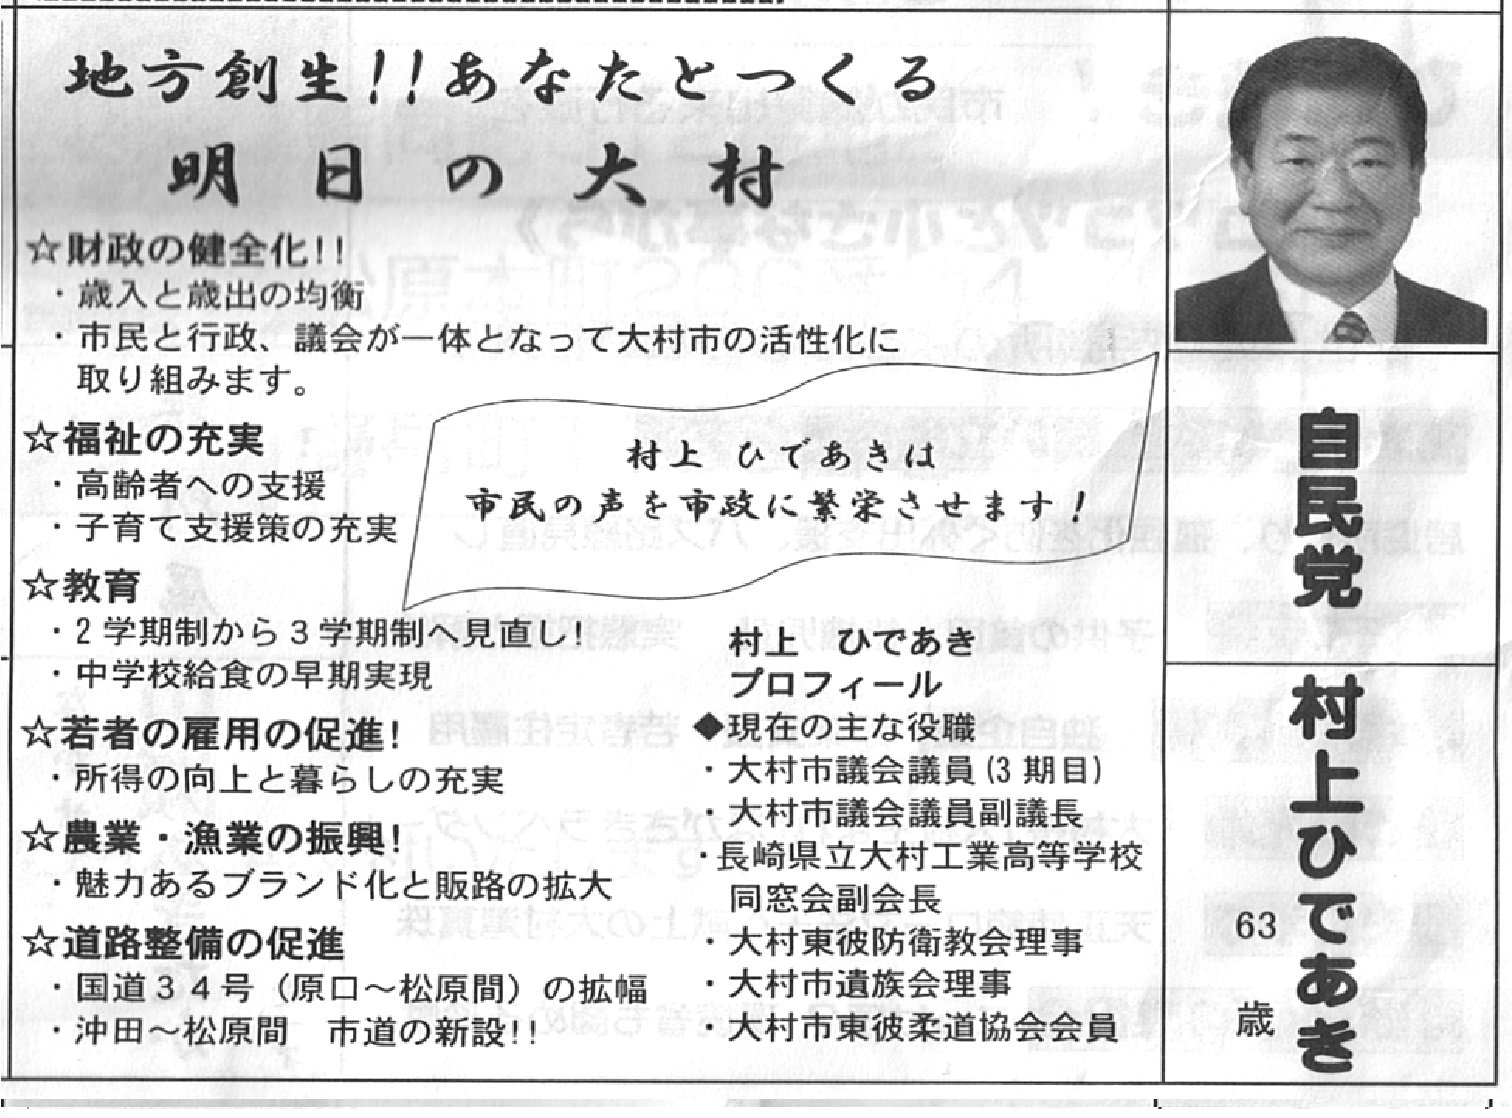 地方創生!!あなたとつくる
明日の大村
☆財政の健全化!!
・歳入と歳出の均衡
・市民と行政、議会が一体となって大村市の活性化に
取り組みます。
☆福祉の充実
・高齢者への支援
・子育て支援策の充実
☆教育
・2学期制から3学期制へ見直し!
・中学校給食の早期実現
☆若者の雇用の促進!
・所得の向上と暮らしの充実
☆農業・漁業の振興!
・魅力あるブランド化と販路の拡大
☆道路整備の促進
・国道34号（原口～松原間）の拡幅
・沖田～松原間　市道の新設!!
村上 ひであきは
市民の声を市政に繁栄させます!
村上　ひであき
プロフィール
◆現在の主な役職
・大村市議会議員(3期目)
・大村市議会議員副議長
・長崎県立大村工業高等学校
同窓会副会長
・大村東彼防衛教会理事
・大村市遺族会理事
・大村市東彼柔道協会会員
自民党
村上ひであき
63歳